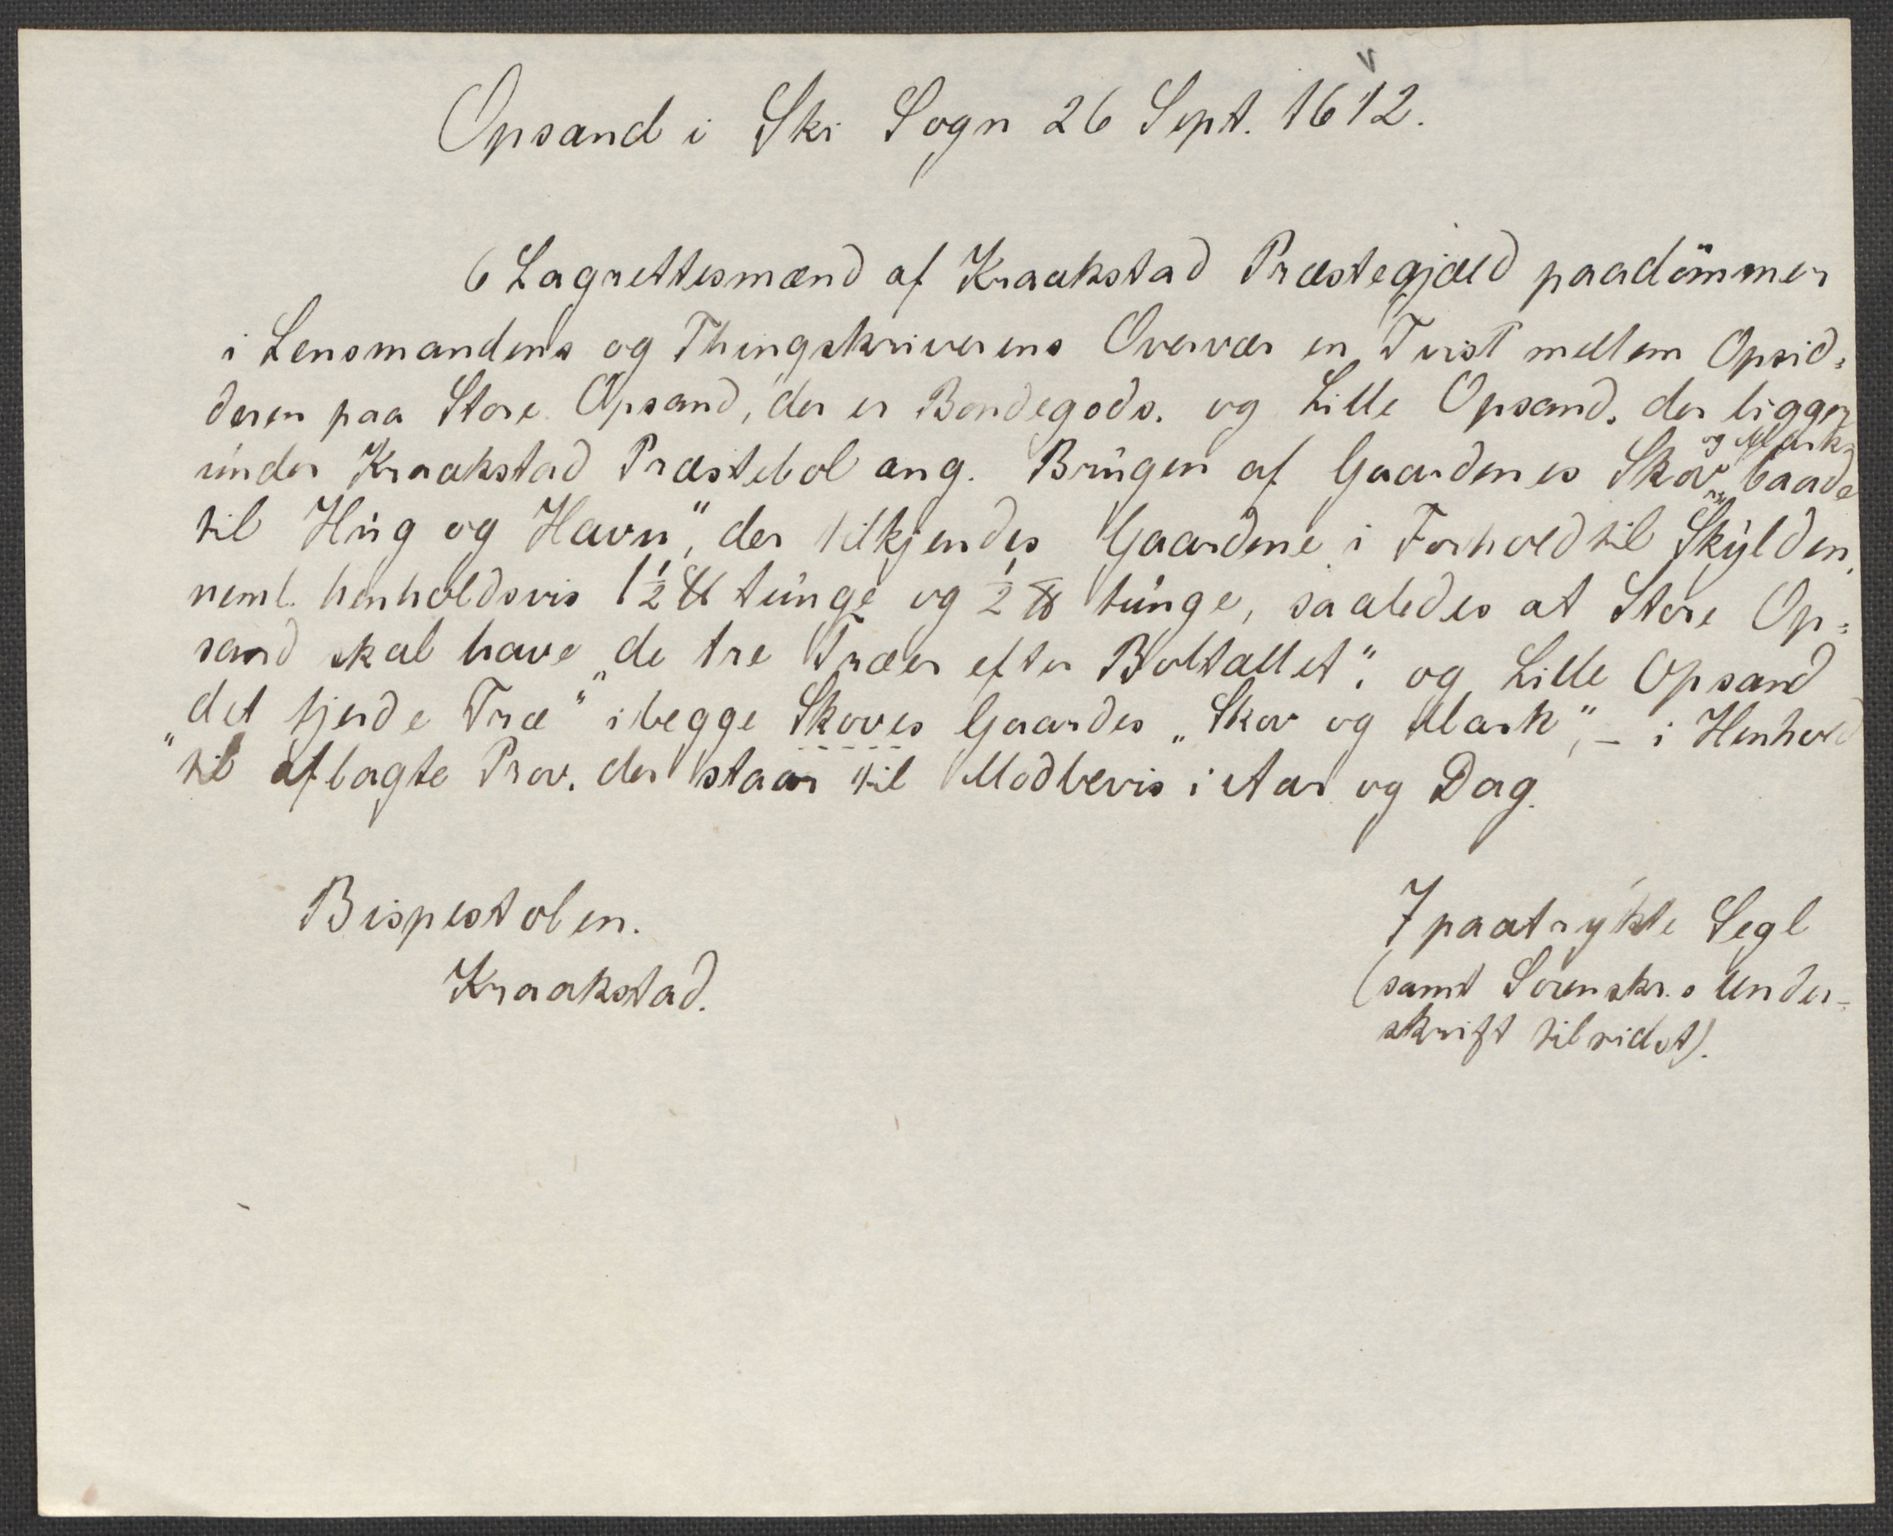 Opsand i Ski Sogn 26 Sept. 1612.
6 Lagrettesmænd af Kraakstad Præstegjæld paadömmer
i Lensmandens og Thingskriverens Overvær en Tvist mellem Opsid-
deren paa Store Opsand, der er Bondegods, og Lille Opsand, der ligger
under Kraakstad Præstebol ang. Brugen af Gaardenes Skov og Mark, „baade
til Hug og Havn", der tilkjendes Gaardene i Forhold til Skylden,
neml. henholdsvis 1½ ℔ tunge og ½ ℔ tunge, saaledes at Store Op-
sand skal have „de tre Træer efter Boltallet", og Lille Opsand
„det fjerde Træ" i begge Skoves Gaardes „Skov og Mark", – i Henhold
til aflagte Prov, der staar til Modbevis i Aar og Dag.
Bispestolen.
Kraakstad.
7 paatrykte Segl
(samt Sorenskr.s Under-
skrift tilsidst).